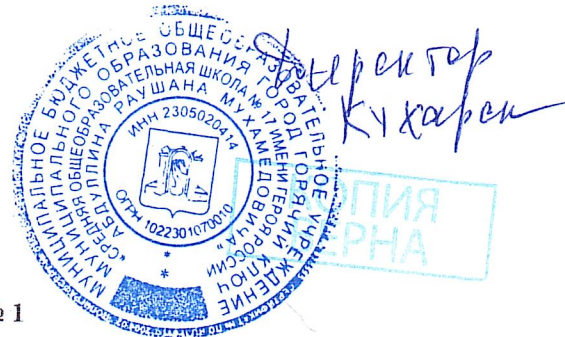 МУНИЦИПАЛЬНОЕ БЮДЖЕТНОЕ ОБЩЕОБРАЗОВАТЕЛЬНОЕ УЧРЕЖДЕНИЕ
МУНИЦИПАЛЬНОГО ОБРАЗОВАНИЯ ГОРОД ГОРЯЧИЙ КЛЮЧ
"СРЕДНЯЯ ОБЩЕОБРАЗОВАТЕЛЬНАЯ ШКОЛА № 17 ИМЕНИ ГЕРОЯ РОССИИ
АБДУЛЛИНА РАУШАНА МУХАМЕДОВИЧА"
ИНН 2305020414
ОГРН 1022301070010
* *
Директор
КОПИЯ
ВЕРНА
1